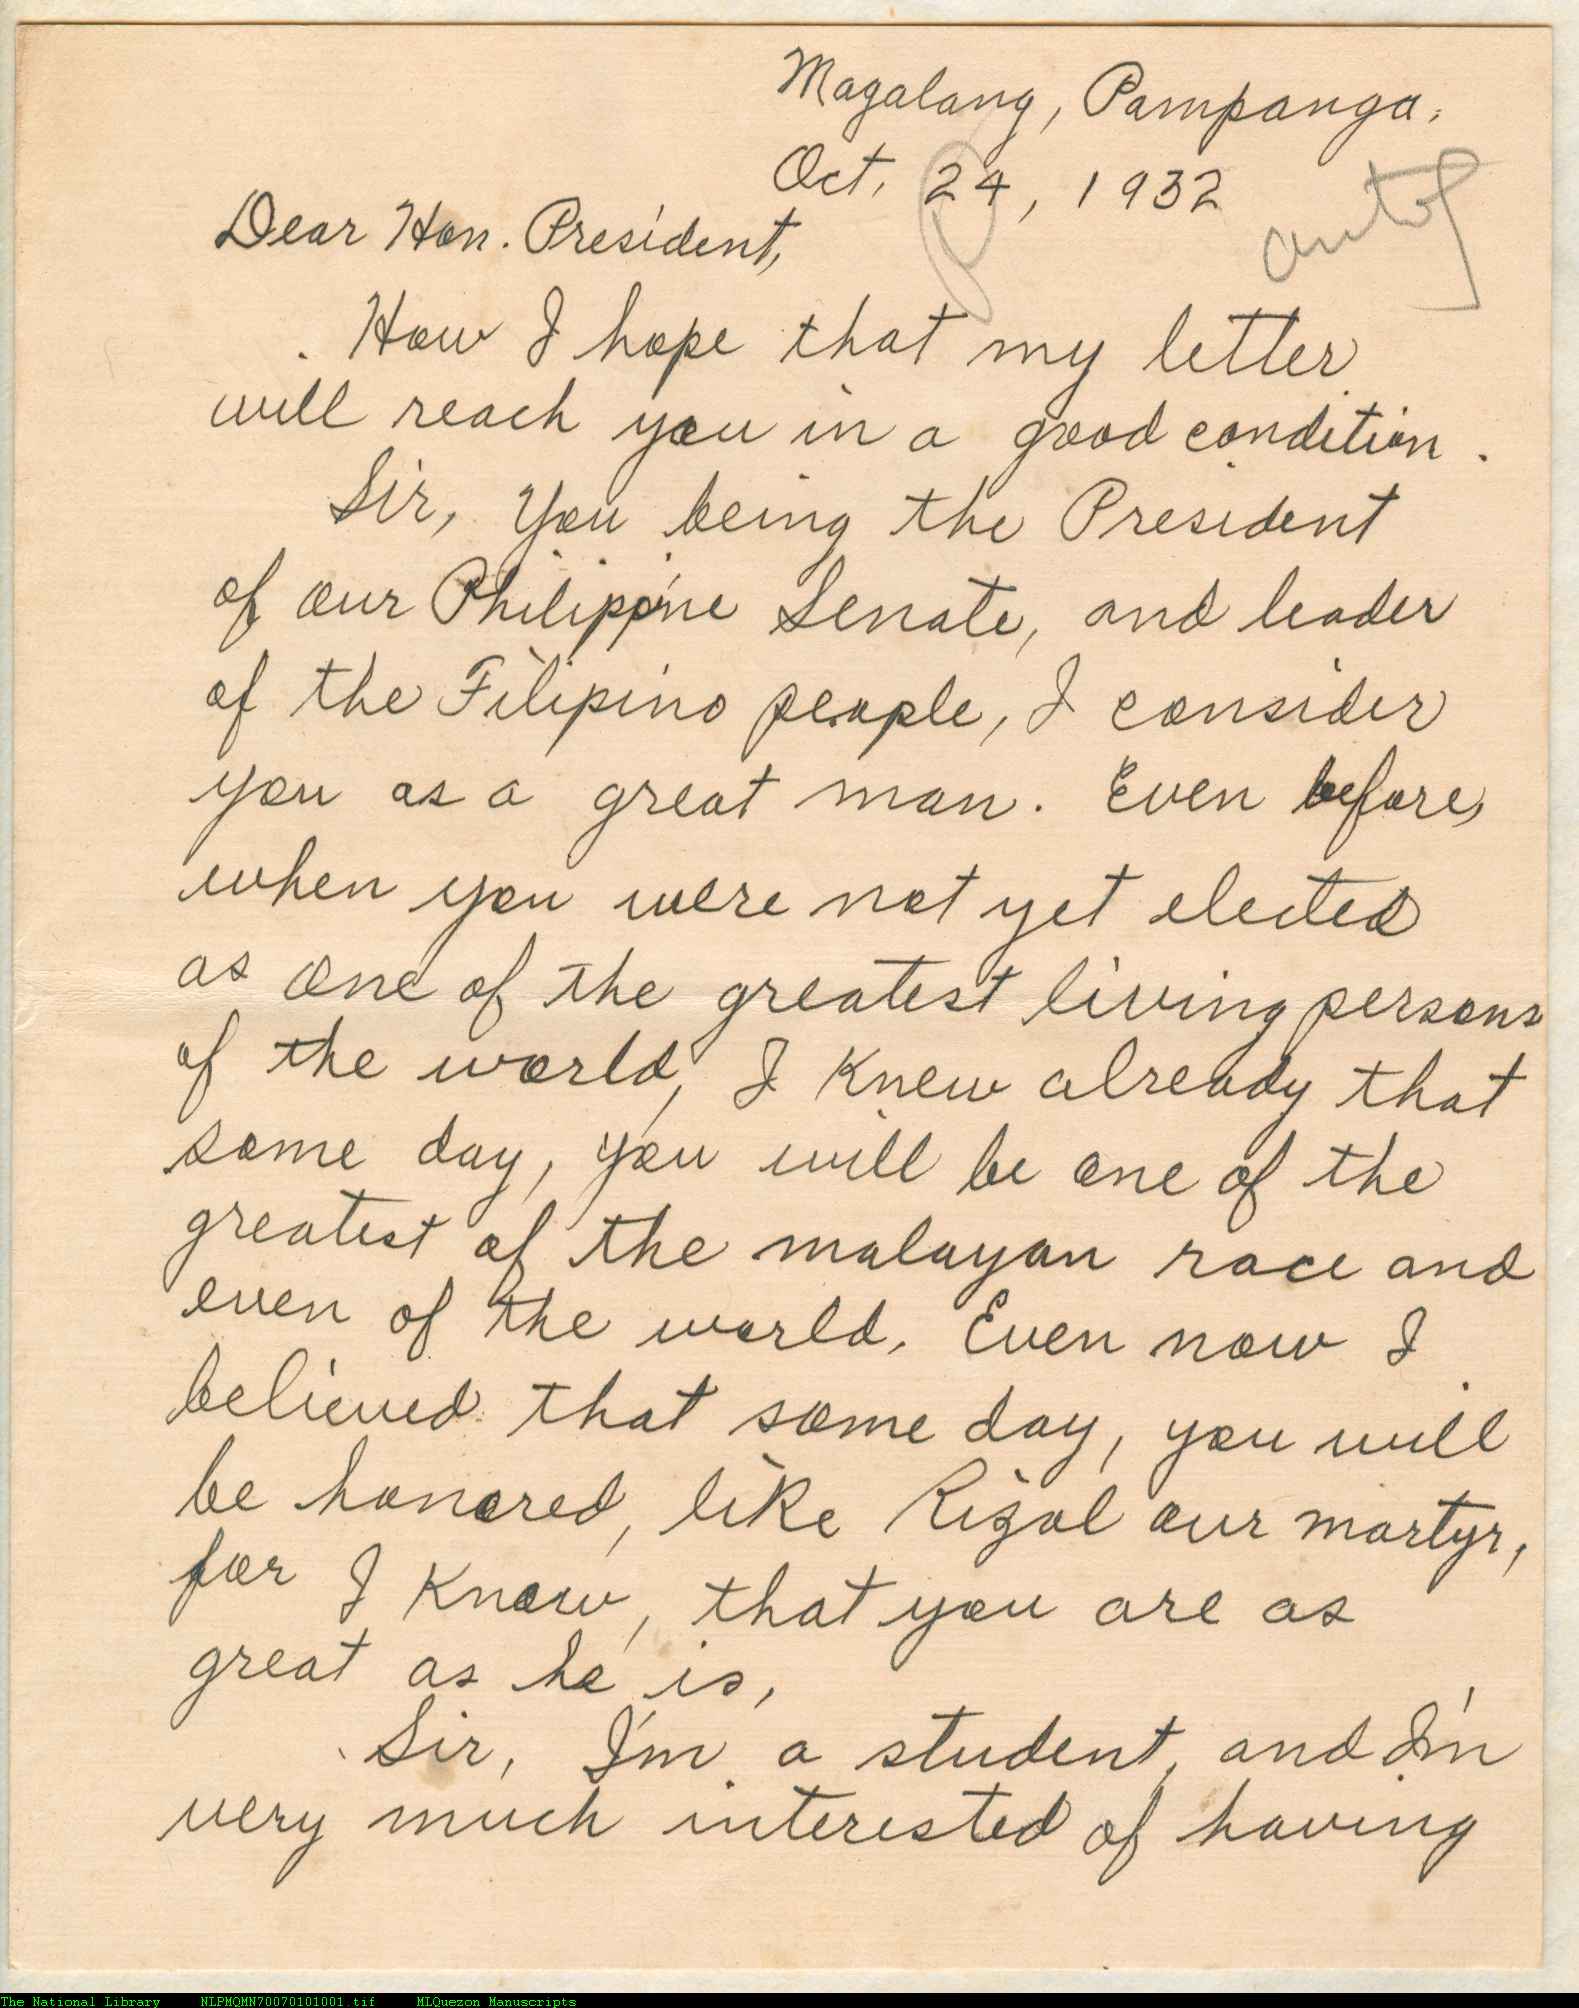 Magalang, Pampanga,
Oct. 24, 1932
Dear Hon. President,
How I hope that my letter
will reach you in a good condition.
Sir, you being the President
of our Philippine Senate, and leader
of the Filipino people, I consider
you as a great man. Even before,
when you were not yet elected
as one of the greatest living persons
of the world, I knew already that
some day, you will be one of the
greatest of the malayan race and
even of the world. Even now I
believed that some day, you will
be honored, like Rizal our martyr,
for I know, that you are as
great as he is,
Sir, I'm a student, and I'm
very much interested of having
The National Library NLPMQMN70070101001.tif MLQuezon Manuscripts